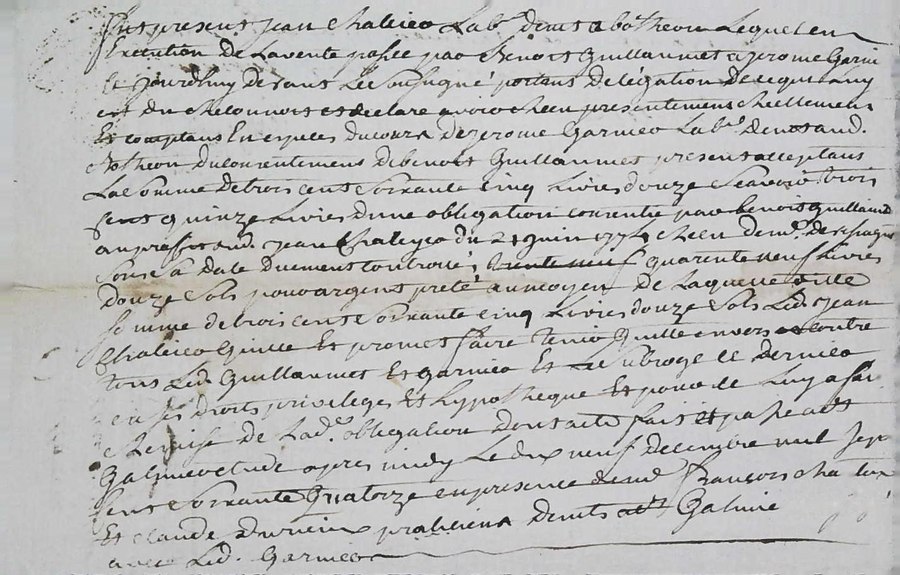 fut present jean chaleieo Lab.r demt a botheon Lequel en
Execution De Lavente passée par Benoist Guillaumet a jerome Garni
Et jourdhuy Devant Le soussigné portant delegation De ce qui luy
est du
Et comptant En especes Du cours De jerome Garnieo Lab.r demt aud.
Botheon Du Consentement de benoist Guillaumet present acceptant
La Somme De trois cent Soixante Cinq Livres douze Scavoir trois
sent quinze Livres Dune obligation consentie par benoist Guillaume
au profit aud. jean Chaleyeo du 21 juin 1774
Sous sa Date Duement Controlé, trente neuf quarente neuf Livres
Douze Sols pour argent preté au moyen De Laquelle
somme de trois cent Soixante Cinq Livres douze Sols Led. jean
Chaleieo Quitte Et promet faire tenir Quitte envers et contre
tous Led. Guillaumet Et Garnieo Et Le subroge ce Dernieo
en ses Droits privileges Et hypotheque Et pour de Luy a fai
remise De Lad. obligation Dont acte fait et passé a st
Galmier Etude apres midy Le dix neuf Decembre mil sep
sent Soixante Quatorze en presence de françois cha
Et claude Durieux praticiens Demts a st Galmie
avec Led. Garnieo